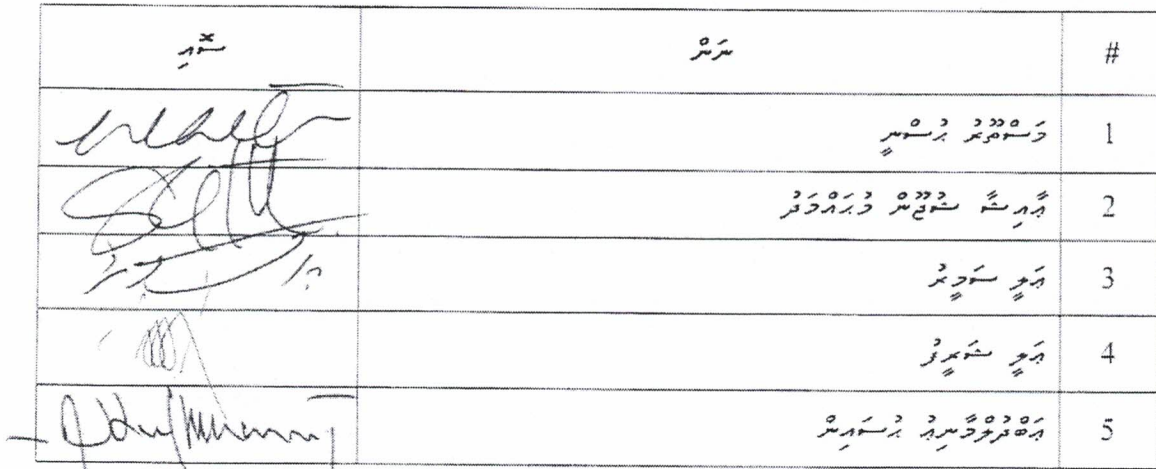 # ނަން ސޮއި
1 މަސްތޫރު ޙުސްނީ
2 ޢާއިޝާ ޝުޖޫން މުޙައްމަދު
3 ޢަލީ ސަމީރު
4 ޢަލީ ޝަރީފު
5 ޢަބްދުލްމާނިޢު ޙުސައިން